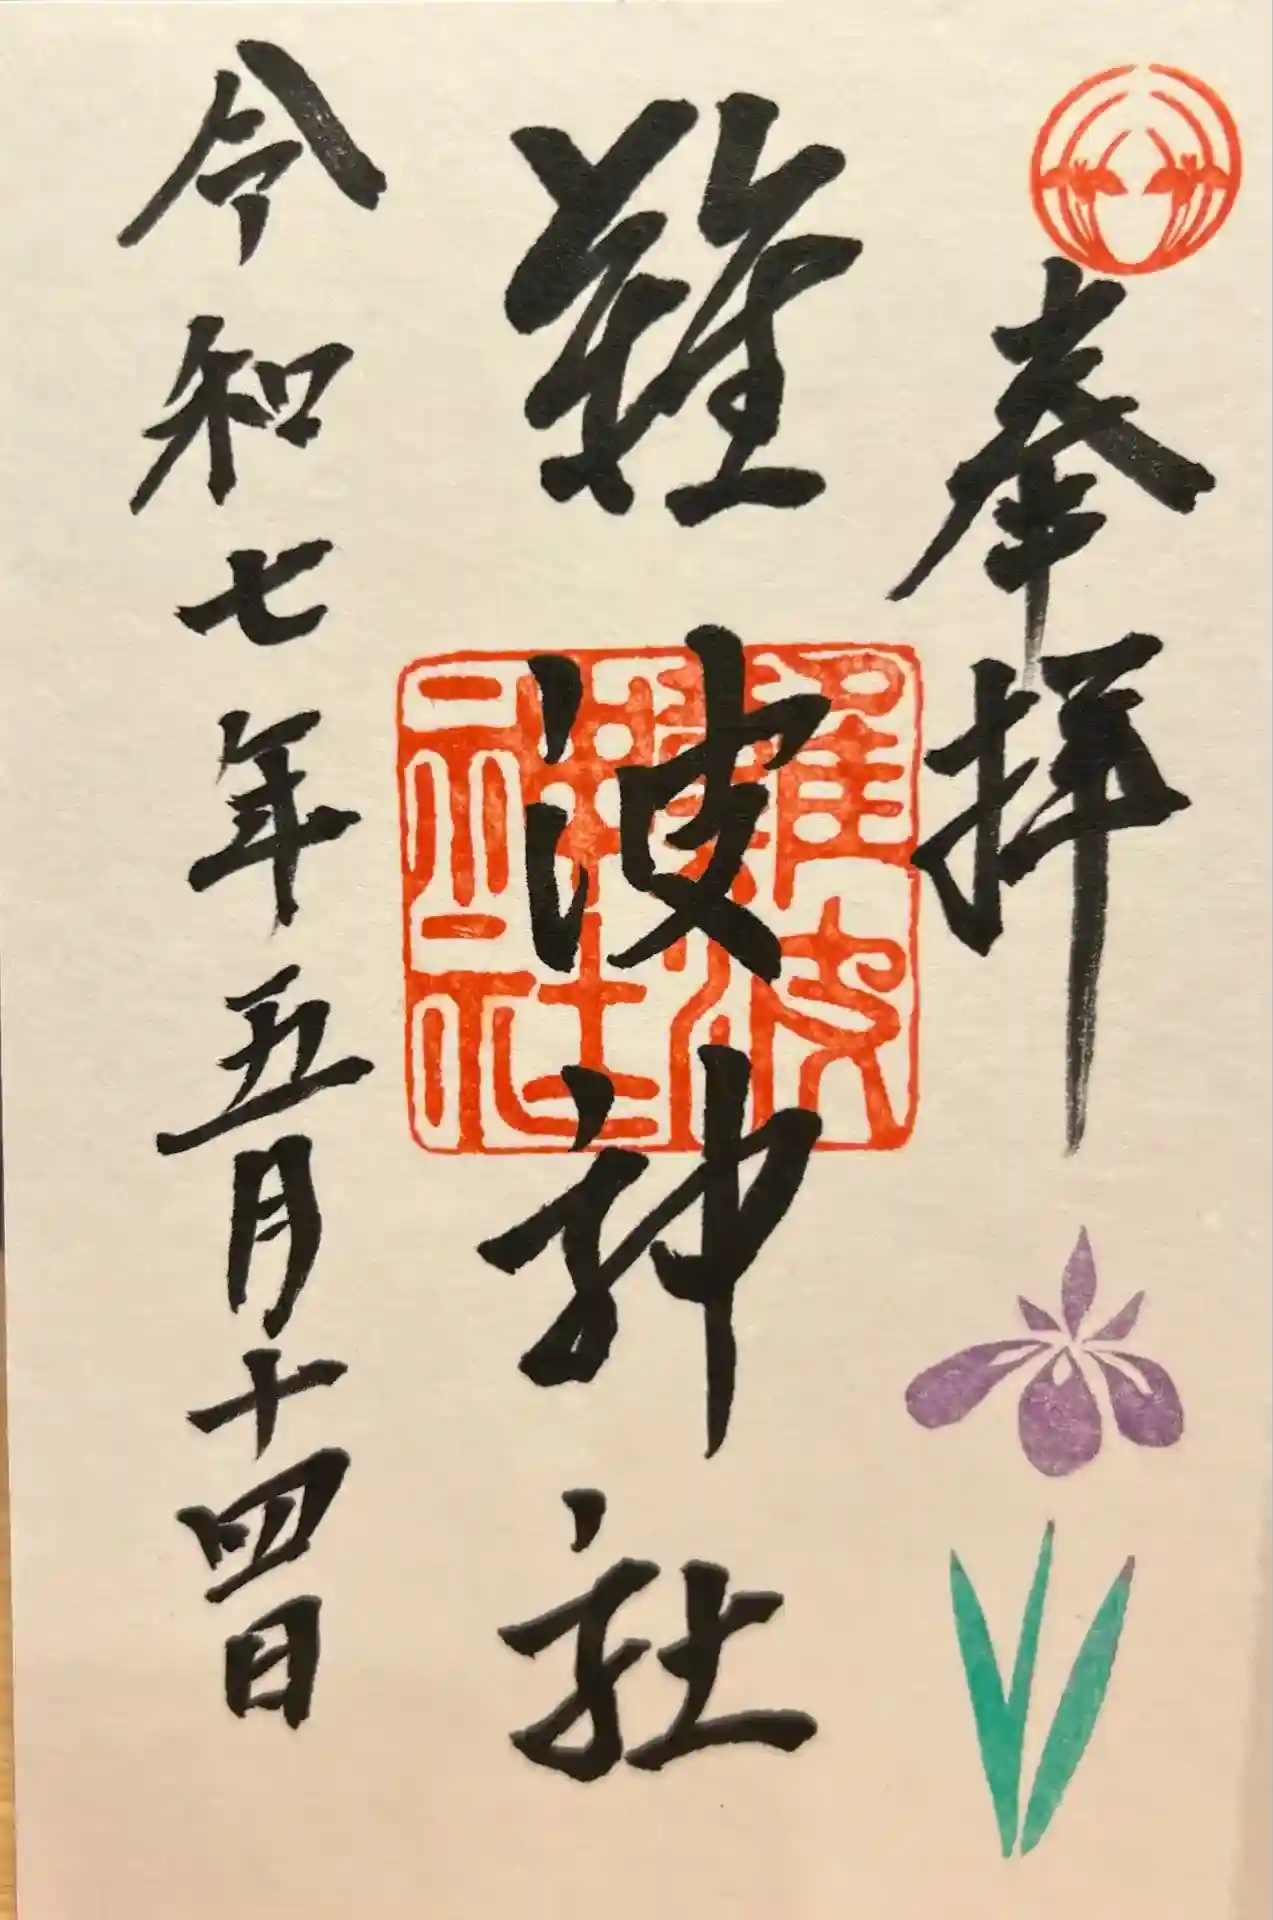 奉拝
難波神社
難波神社
令和七年五月十四日